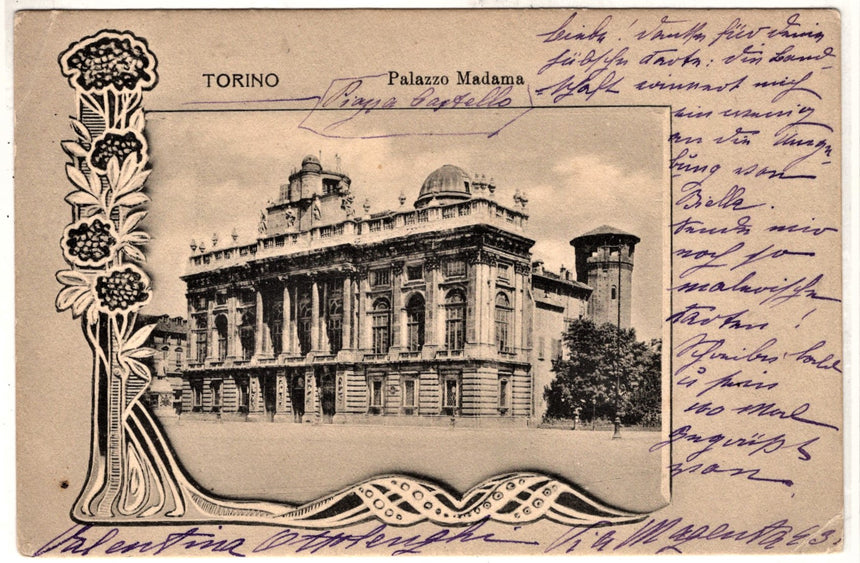 TORINO
Palazzo Madama
Piazza Castello
Liebe! Danke für deine
hübsche Karte: die Land-
schaft erinnert mich
ein wenig
an die Umge-
bung von
Biella.
Sende mir
noch so
malerische
Karten!
Schreibe bald
u sei
Mal
gegrüßt
von
Valentina Ottolenghi Via Magenta